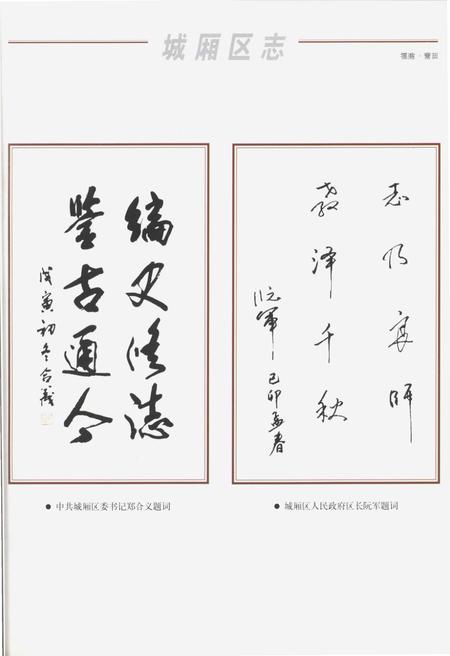 城厢区志
福建·莆田
编史修誌
鉴古通今
戊寅初冬合义
志乃宸师
教泽千秋
阮军
己卯孟春
● 中共城厢区委书记郑合义题词
● 城厢区人民政府区长阮军题词